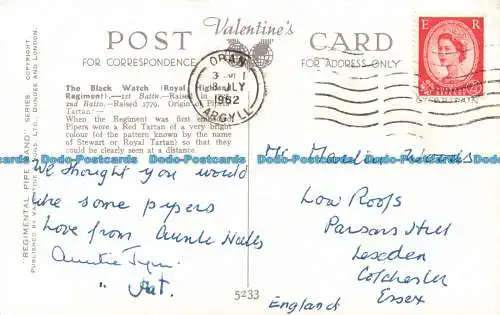 POST
Valentine's
CARD
FOR CORRESPONDENCE
FOR ADDRESS ONLY
E R
OBAN
8 JLY
1962
ARGYLL
The Black Watch (Royal Highland
Regiment).—1st Battn.—Raised
2nd Battn.—Raised 1779. Origin of
Tartan:—
When the Regiment was first
Pipers wore a Red Tartan of a very bright
colour (of the pattern known by the name
of Stewart or Royal Tartan) so that they
could be clearly seen at a distance.
"REGIMENTAL PIPE BAND" SERIES. COPYRIGHT.
PUBLISHED BY VALENTINE & SONS LTD., DUNDEE AND LONDON.
We thought you would
like some pipers
Love from Auntie
Auntie
" Pat.
Low Roofs
Parsons Hill
Lexden
Colchester
Essex
England
5233
Dodo-Postcards Dodo-Postcards Dodo-Postcards Dodo-Postcards Dodo-Postcards Dodo-Postcards